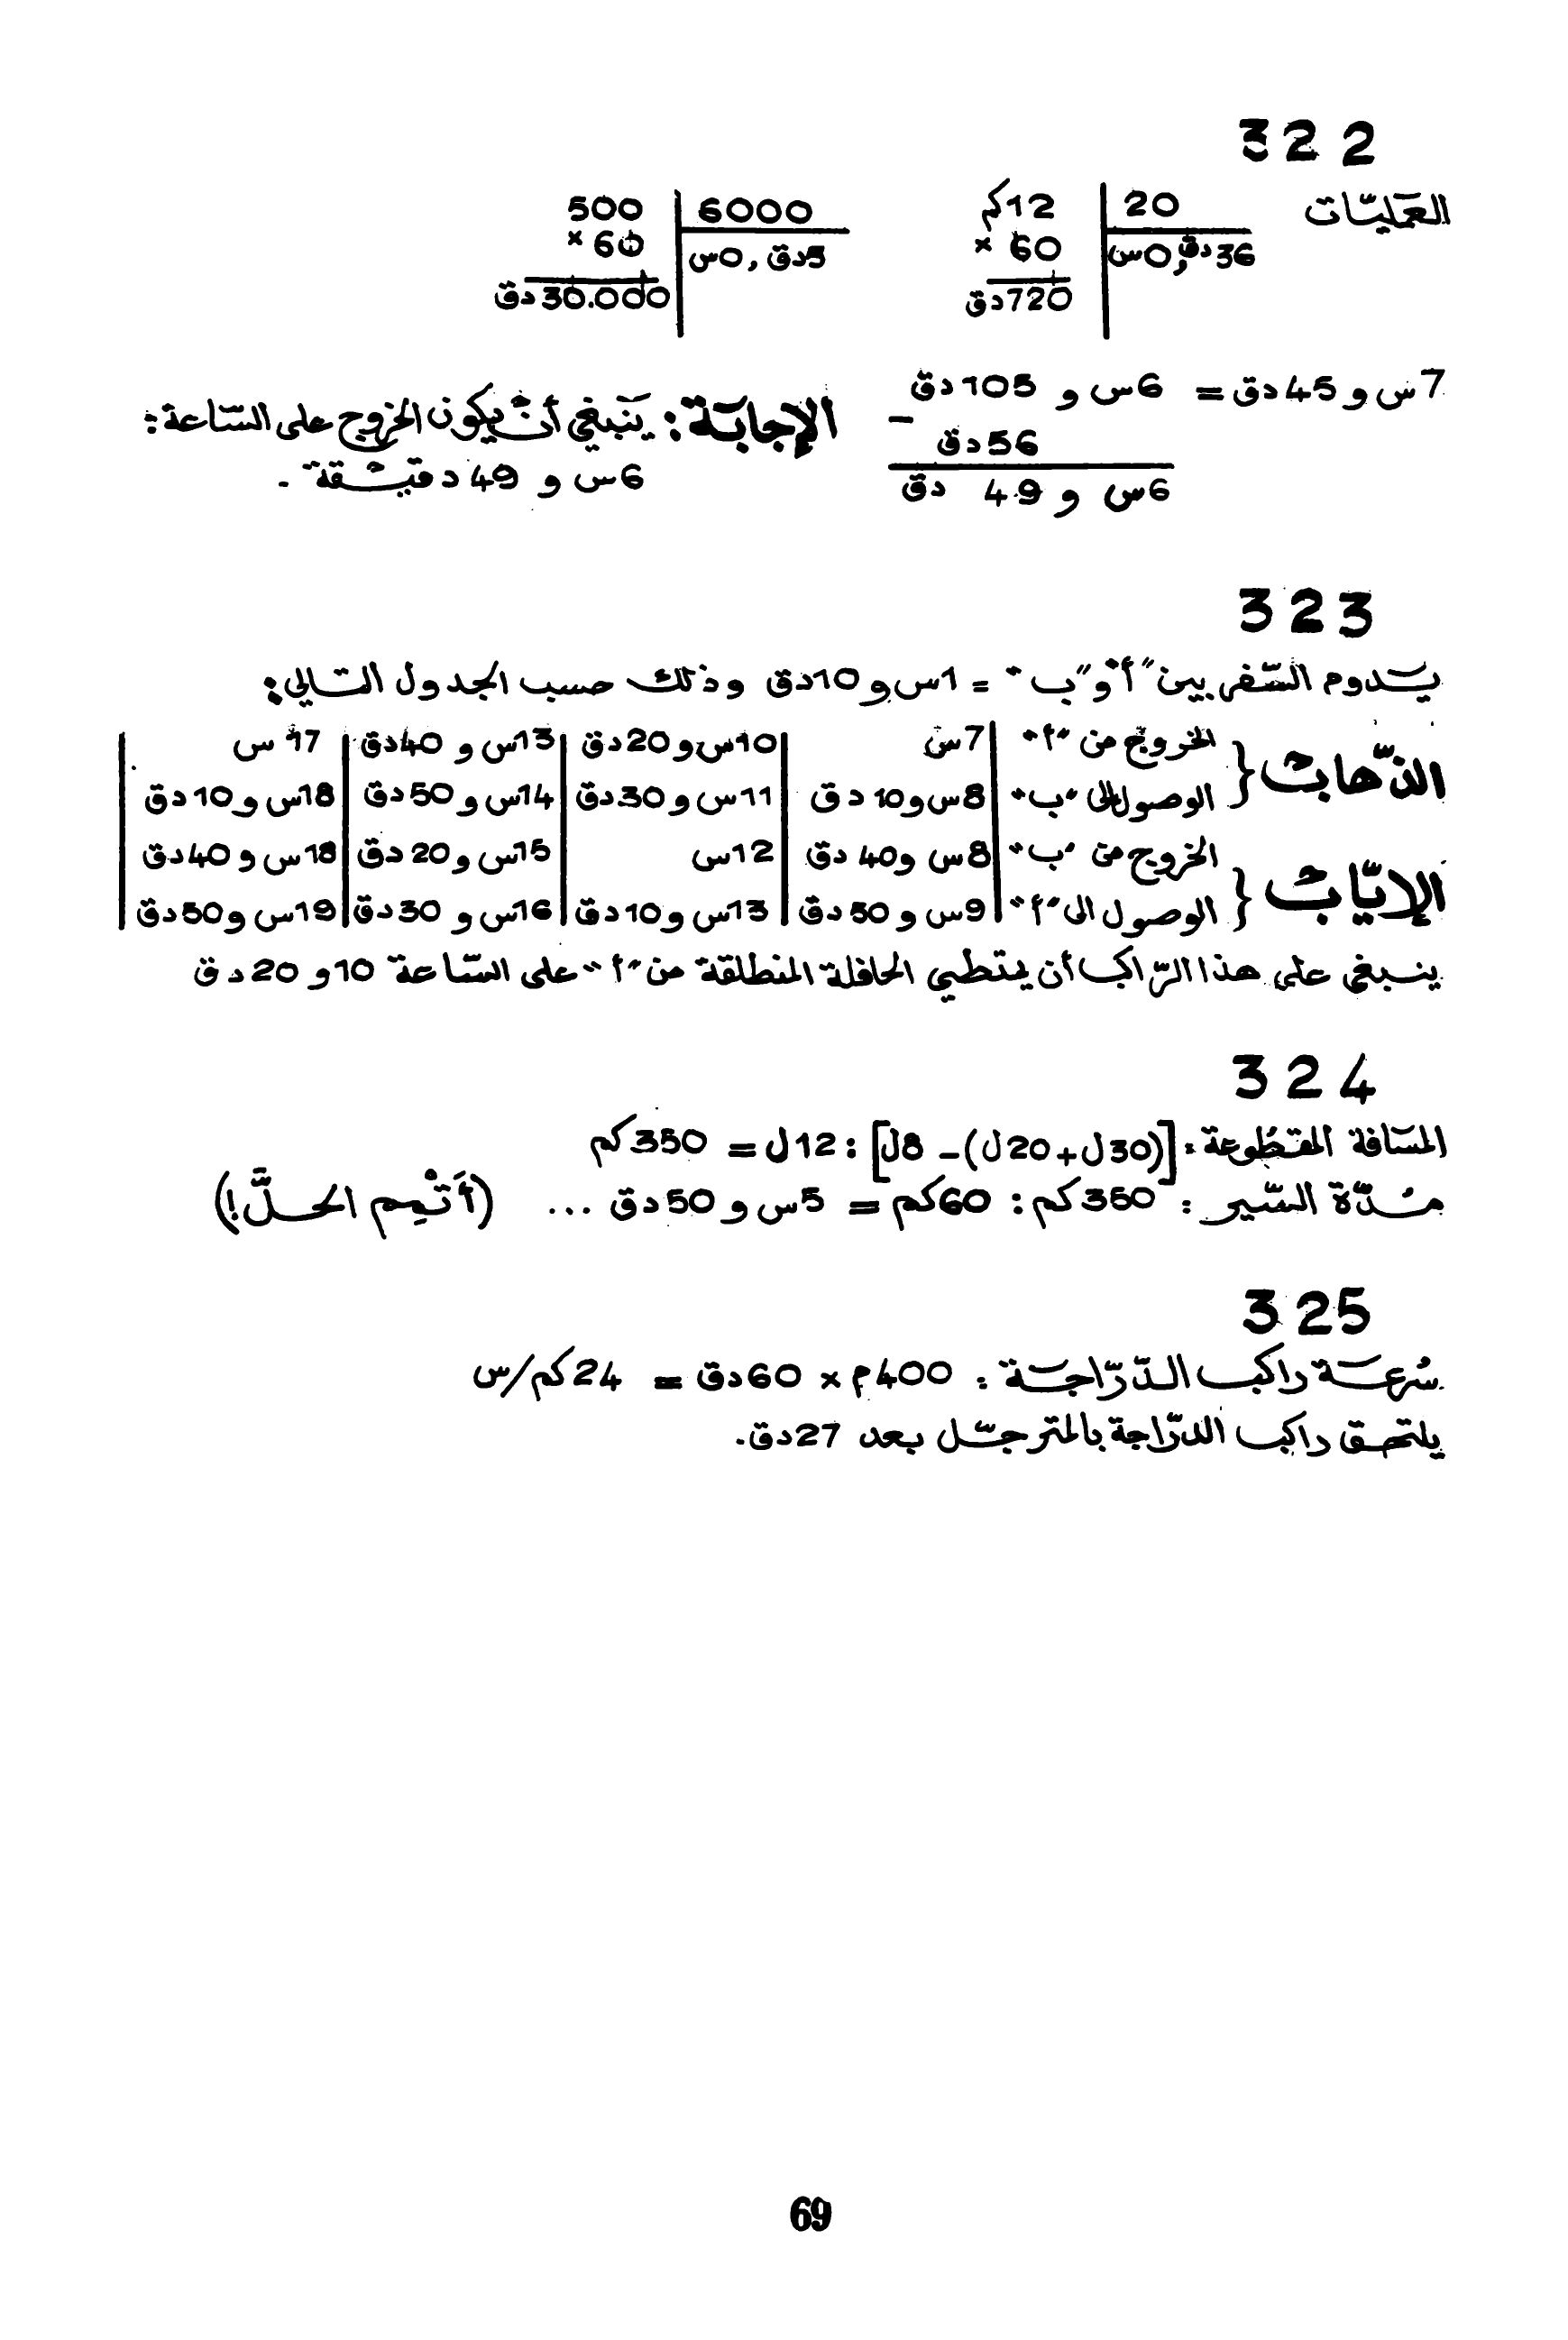 322
العمليّات
12كم | 20
× 60 | 0س, 36دق
720دق
500 | 6000
× 60 | 0س, 5دق
30.000دق
7س و 45دق = 6س و 105دق
− 56دق
6س و 49 دق
الإجابة: ينبغي أن يكون الخروج على السّاعة:
6س و 49 دقيقة.
323
يدوم السّفر بين "أ" و "ب" = 1س و 10دق وذلك حسب الجدول التّالي:
الذّهاب { الخروج من "أ" | 7س | 10س و 20دق | 13س و 40دق | 17 س
الوصول الى "ب" | 8س و 10دق | 11س و 30دق | 14س و 50دق | 18س و 10دق
الإيّاب { الخروج من "ب" | 8س و 40 دق | 12س | 15س و 20دق | 18س و 40دق
الوصول الى "أ" | 9س و 50دق | 13س و 10دق | 16س و 30دق | 19س و 50دق
ينبغي على هذا الرّاكب أن يمتطي الحافلة المنطلقة من "أ" على السّاعة 10 و 20 دق
324
المسافة المقطوعة: [(30ل + 20ل) − 8ل] : 12ل = 350كم
مدّة السّير : 350كم : 60كم = 5س و 50دق ... (أَتْمِم الحلَّ!)
325
سُرعة راكب الدّرّاجة : 400م × 60دق = 24كم/س
يلتحق راكب الدرّاجة بالمترجّل بعد 27دق.
69